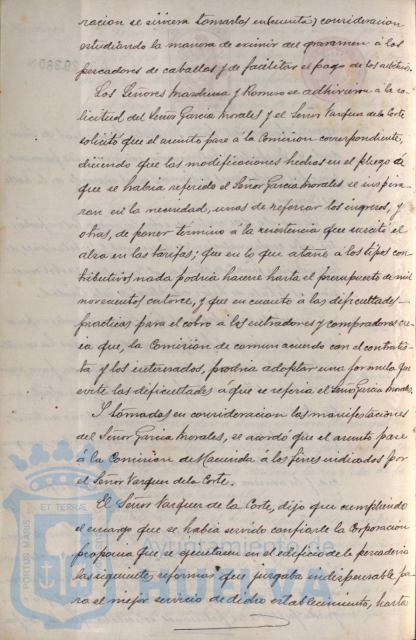 racion se sirviera tomarlas en (cuenta) consideracion
estudiando la manera de eximir del gravamen á los
pescadores de caballas y de facilitar el pago de los arbitrios.
Los Señores Marchena y Romero se adhirieron á la so-
licitud del Señor Garcia Morales y el Señor Vazquez de la Corte
solicitó que el asunto pase á la Comision correspondiente,
diciendo que las modificaciones hechas en el pliego de
que se habia referido el Señor Garcia Morales se inspira-
ran en la necesidad, unas de reforzar los ingresos, y
otras, de poner termino á la resistencia que suscitó el
alza en las tarifas; que en lo que atañe á los tipos con-
tributivos nada podria hacerse hasta el presupuesto de mil
novecientos catorce, y que en cuanto á las dificultades
practicas para el cobro á los entradores y compradores cre-
ia que, la Comision de comun acuerdo con el contratis-
ta y los interesados, podria adoptar una formula que
evite las dificultades á que se referia el Señor Garcia Morales.
Y tomadas en consideracion las manifestaciones
del Señor Garcia Morales, se acordó que el asunto pase
á la Comision de Hacienda á los fines indicados por
el Señor Vazquez de la Corte.
El Señor Vazquez de la Corte, dijo que cumpliendo
el encargo que se habia servido confiarle la Corporacion
proponia que se ejecutasen en el edificio de la pescaderia
las siguientes reformas que juzgaba indispensable pa-
ra el mejor servicio de dicho establecimiento, hasta
PORTUS MARIS ET TERRAE
Ayuntamiento de
HUELVA